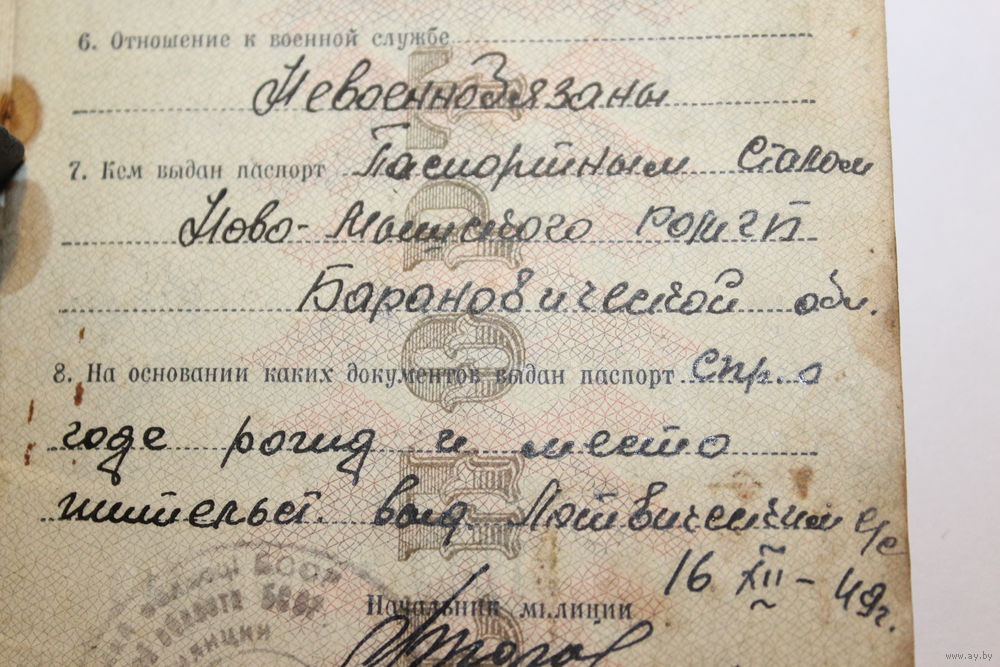 6. Отношение к военной службе
Невоеннобязаны
7. Кем выдан паспорт Паспортным Столом
Ново-Мышского РОМГБ
Барановической обл.
8. На основании каких документов выдан паспорт Спр. о
годе рожд и место
жительст. выд. Лотвическим с/с
16 XII – 49 г.
БССР
Начальник милиции
www.ay.by